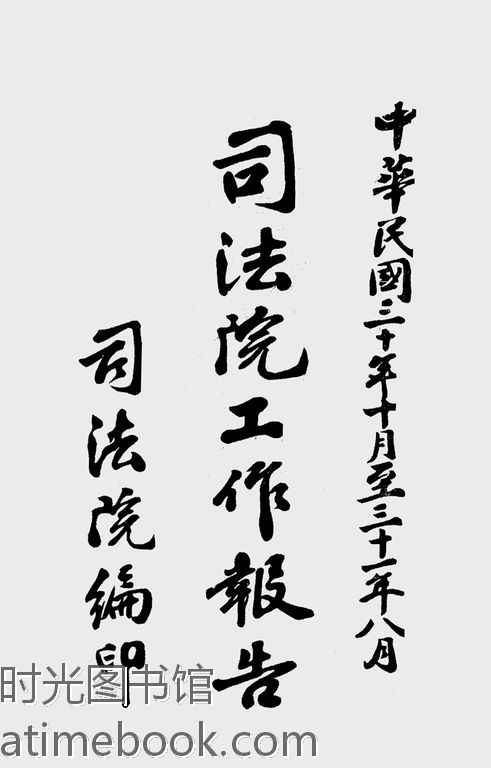 中華民國三十年十月至三十一年八月
司法院工作報告
司法院編印
时光图书馆
atimebook.com